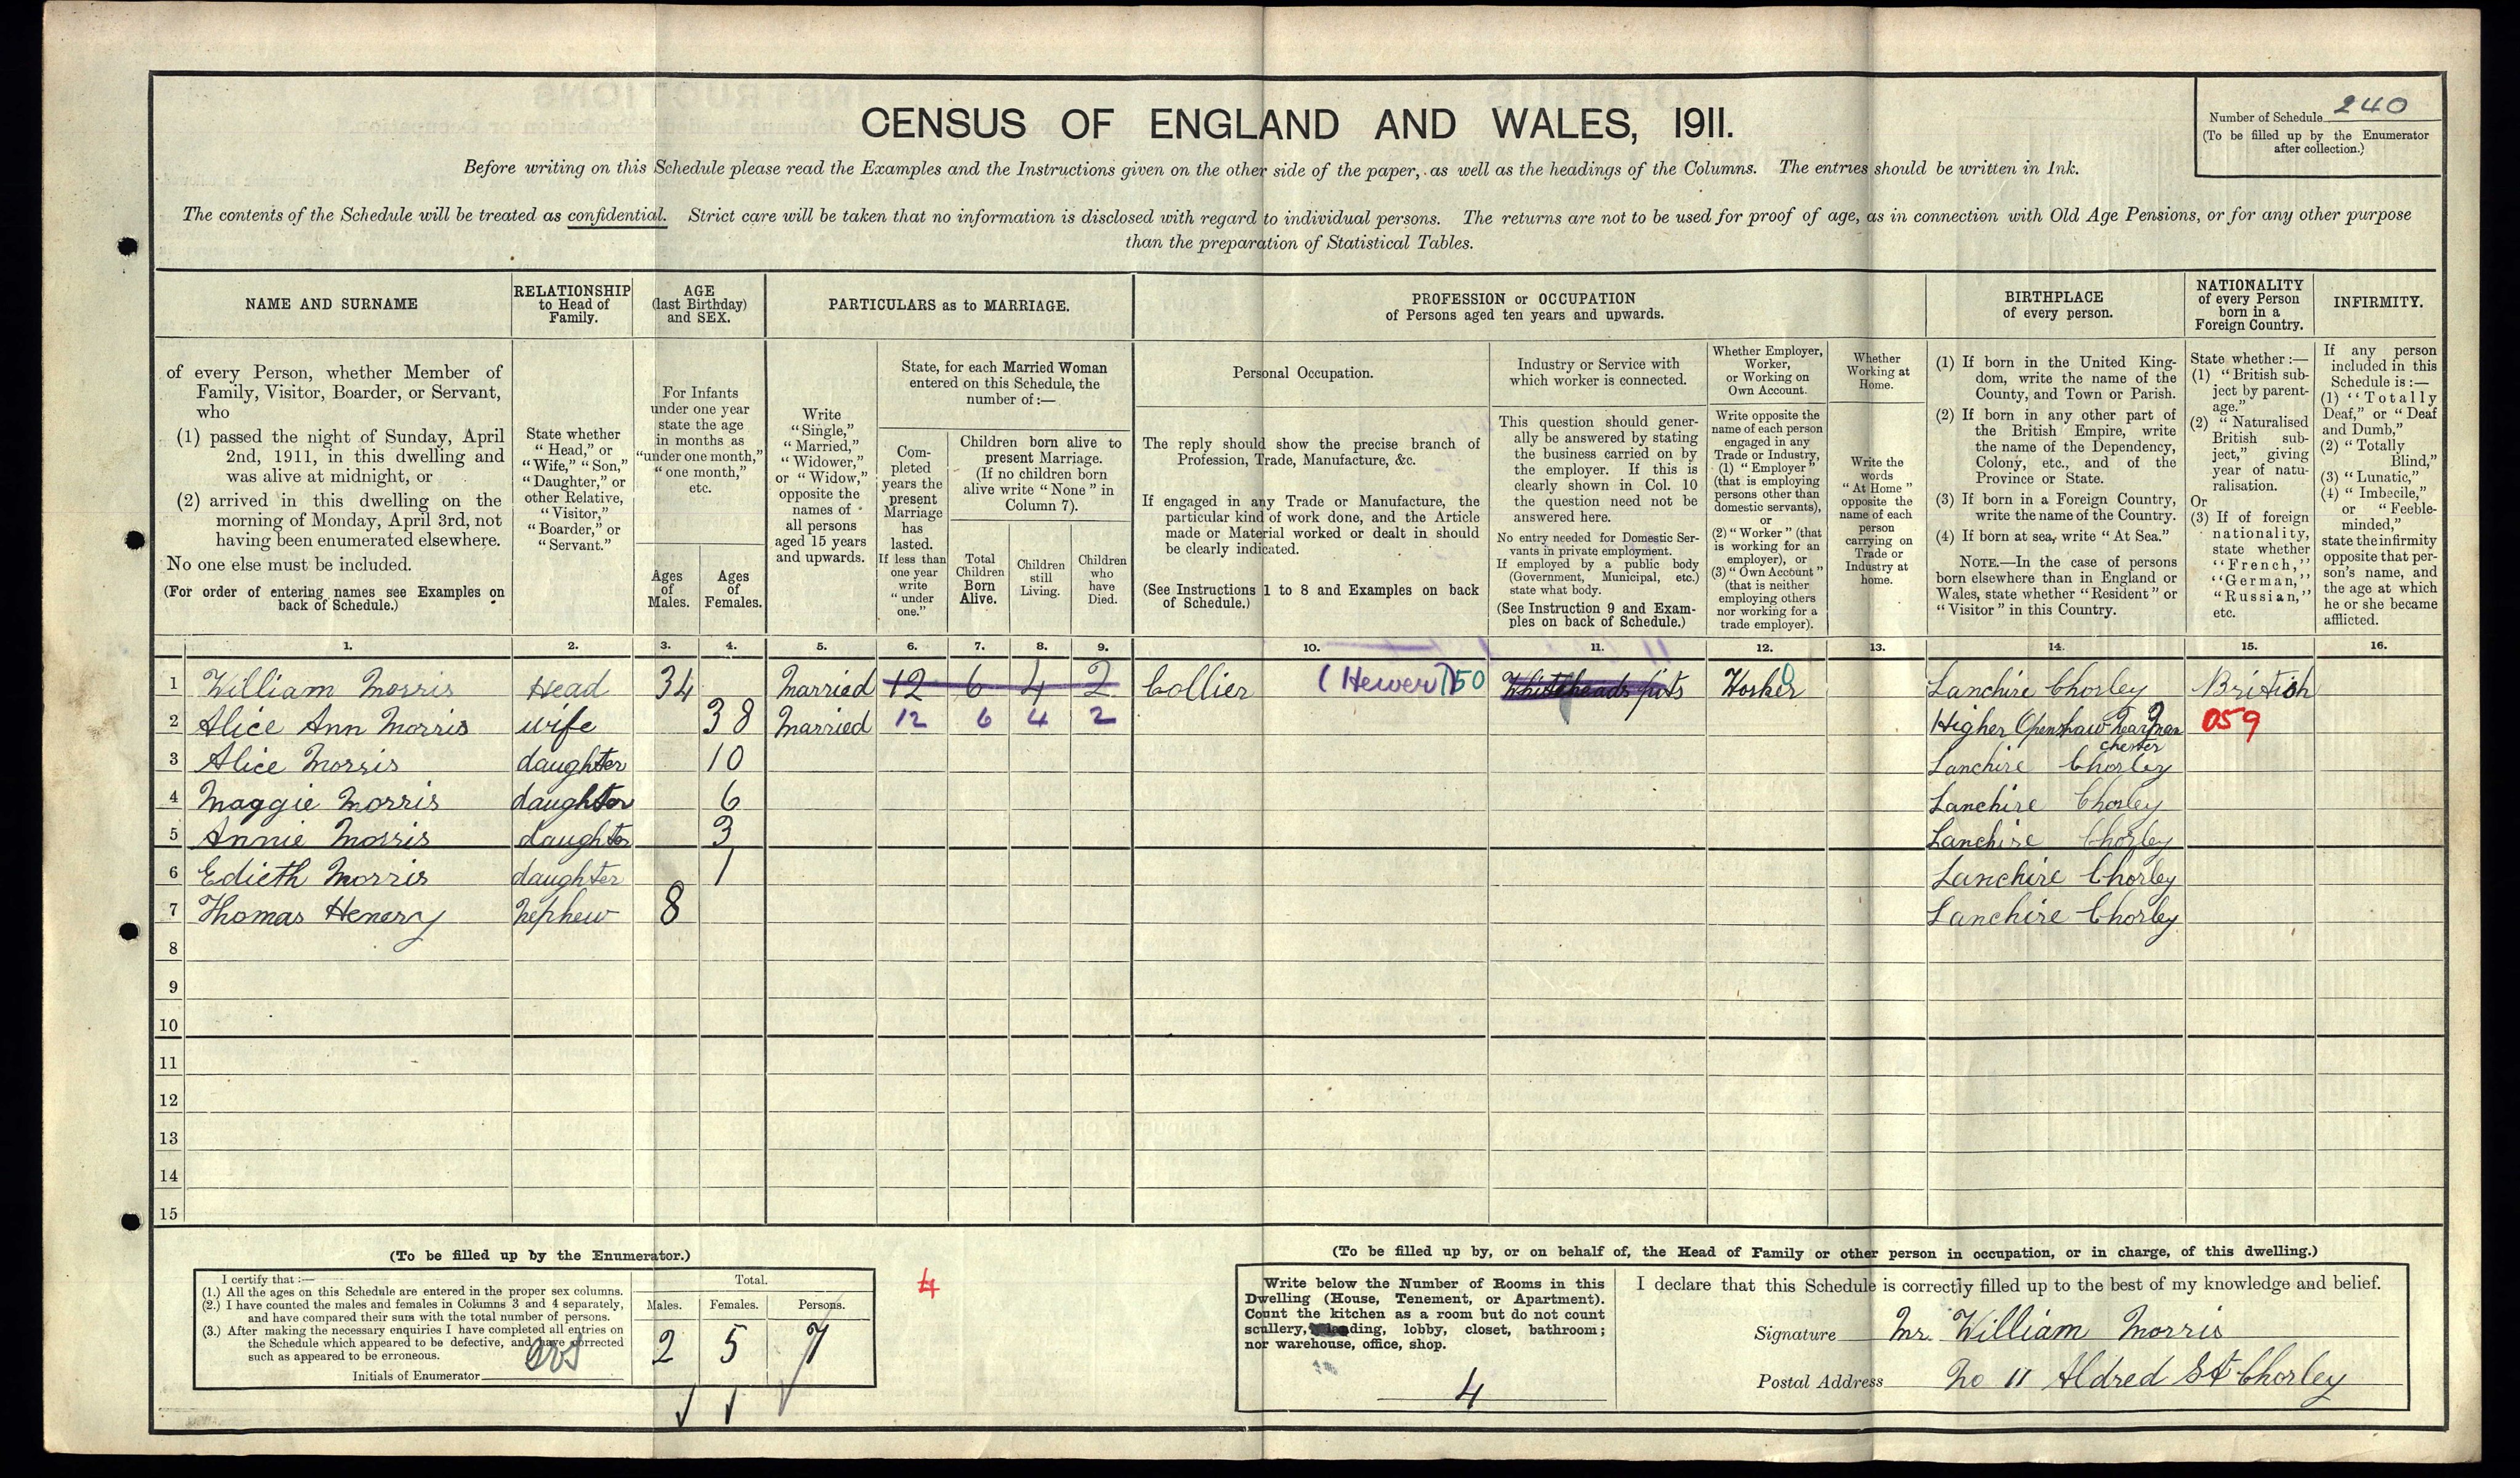 CENSUS OF ENGLAND AND WALES, 1911.
Number of Schedule 240
(To be filled up by the Enumerator
after collection.)
Before writing on this Schedule please read the Examples and the Instructions given on the other side of the paper, as well as the headings of the Columns. The entries should be written in Ink.
The contents of the Schedule will be treated as confidential. Strict care will be taken that no information is disclosed with regard to individual persons. The returns are not to be used for proof of age, as in connection with Old Age Pensions, or for any other purpose
than the preparation of Statistical Tables.
NAME AND SURNAME
of every Person, whether Member of
Family, Visitor, Boarder, or Servant,
who
(1) passed the night of Sunday, April
2nd, 1911, in this dwelling and
was alive at midnight, or
(2) arrived in this dwelling on the
morning of Monday, April 3rd, not
having been enumerated elsewhere.
No one else must be included.
(For order of entering names see Examples on
back of Schedule.)
RELATIONSHIP
to Head of
Family.
State whether
"Head," or
"Wife," "Son,"
"Daughter," or
other Relative,
"Visitor,"
"Boarder," or
"Servant."
AGE
(last Birthday)
and SEX.
For Infants
under one year
state the age
in months as
"under one month,"
"one month,"
etc.
Ages
of
Males.
Ages
of
Females.
PARTICULARS as to MARRIAGE.
Write
"Single,"
"Married,"
"Widower,"
or "Widow,"
opposite the
names of
all persons
aged 15 years
and upwards.
State, for each Married Woman
entered on this Schedule, the
number of :—
Com-
pleted
years the
present
Marriage
has
lasted.
If less than
one year
write
"under
one."
Children born alive to
present Marriage.
(If no children born
alive write "None" in
Column 7).
Total
Children
Born
Alive.
Children
still
Living.
Children
who
have
Died.
PROFESSION or OCCUPATION
of Persons aged ten years and upwards.
Personal Occupation.
The reply should show the precise branch of
Profession, Trade, Manufacture, &c.
If engaged in any Trade or Manufacture, the
particular kind of work done, and the Article
made or Material worked or dealt in should
be clearly indicated.
(See Instructions 1 to 8 and Examples on back
of Schedule.)
Industry or Service with
which worker is connected.
This question should gener-
ally be answered by stating
the business carried on by
the employer. If this is
clearly shown in Col. 10
the question need not be
answered here.
No entry needed for Domestic Ser-
vants in private employment.
If employed by a public body
(Government, Municipal, etc.)
state what body.
(See Instruction 9 and Exam-
ples on back of Schedule.)
Whether Employer,
Worker,
or Working on
Own Account.
Write opposite the
name of each person
engaged in any
Trade or Industry,
(1) "Employer"
(that is employing
persons other than
domestic servants),
or
(2) "Worker" (that
is working for an
employer), or
(3) "Own Account"
(that is neither
employing others
nor working for a
trade employer).
Whether
Working at
Home.
Write the
words
"At Home"
opposite the
name of each
person
carrying on
Trade or
Industry at
home.
BIRTHPLACE
of every person.
(1) If born in the United King-
dom, write the name of the
County, and Town or Parish.
(2) If born in any other part of
the British Empire, write
the name of the Dependency,
Colony, etc., and of the
Province or State.
(3) If born in a Foreign Country,
write the name of the Country.
(4) If born at sea, write "At Sea."
NOTE.—In the case of persons
born elsewhere than in England or
Wales, state whether "Resident" or
"Visitor" in this Country.
NATIONALITY
of every Person
born in a
Foreign Country.
State whether :—
(1) "British sub-
ject by parent-
age."
(2) "Naturalised
British sub-
ject," giving
year of natu-
ralisation.
Or
(3) If of foreign
nationality,
state whether
"French,"
"German,"
"Russian,"
etc.
INFIRMITY.
If any person
included in this
Schedule is :—
(1) "Totally
Deaf," or "Deaf
and Dumb,"
(2) "Totally
Blind,"
(3) "Lunatic,"
(4) "Imbecile,"
or "Feeble-
minded,"
state the infirmity
opposite that per-
son's name, and
the age at which
he or she became
afflicted.
1. 2. 3. 4. 5. 6. 7. 8. 9. 10. 11. 12. 13. 14. 15. 16.
1 William Morris Head 34 Married 12 6 4 2 Collier (Hewer) 150 Whiteheads pits Worker Lanchire Chorley British
2 Alice Ann Morris wife 38 Married 12 6 4 2 Higher Openshaw Near Man 059
chester
3 Alice Morris daughter 10 Lanchire Chorley
4 Maggie Morris daughter 6 Lanchire Chorley
5 Annie Morris daughter 3 Lanchire Chorley
6 Edieth Morris daughter 1 Lanchire Chorley
7 Thomas Henery Nephew 8 Lanchire Chorley
8
9
10
11
12
13
14
15
(To be filled up by the Enumerator.)
I certify that :—
(1.) All the ages on this Schedule are entered in the proper sex columns.
(2.) I have counted the males and females in Columns 3 and 4 separately,
and have compared their sum with the total number of persons.
(3.) After making the necessary enquiries I have completed all entries on
the Schedule which appeared to be defective, and have corrected
such as appeared to be erroneous.
Initials of Enumerator
Total.
Males. Females. Persons.
2 5 7
4
(To be filled up by, or on behalf of, the Head of Family or other person in occupation, or in charge, of this dwelling.)
Write below the Number of Rooms in this
Dwelling (House, Tenement, or Apartment).
Count the kitchen as a room but do not count
scullery, landing, lobby, closet, bathroom;
nor warehouse, office, shop.
4
I declare that this Schedule is correctly filled up to the best of my knowledge and belief.
Signature Mr. William Morris
Postal Address No 11 Aldred St Chorley